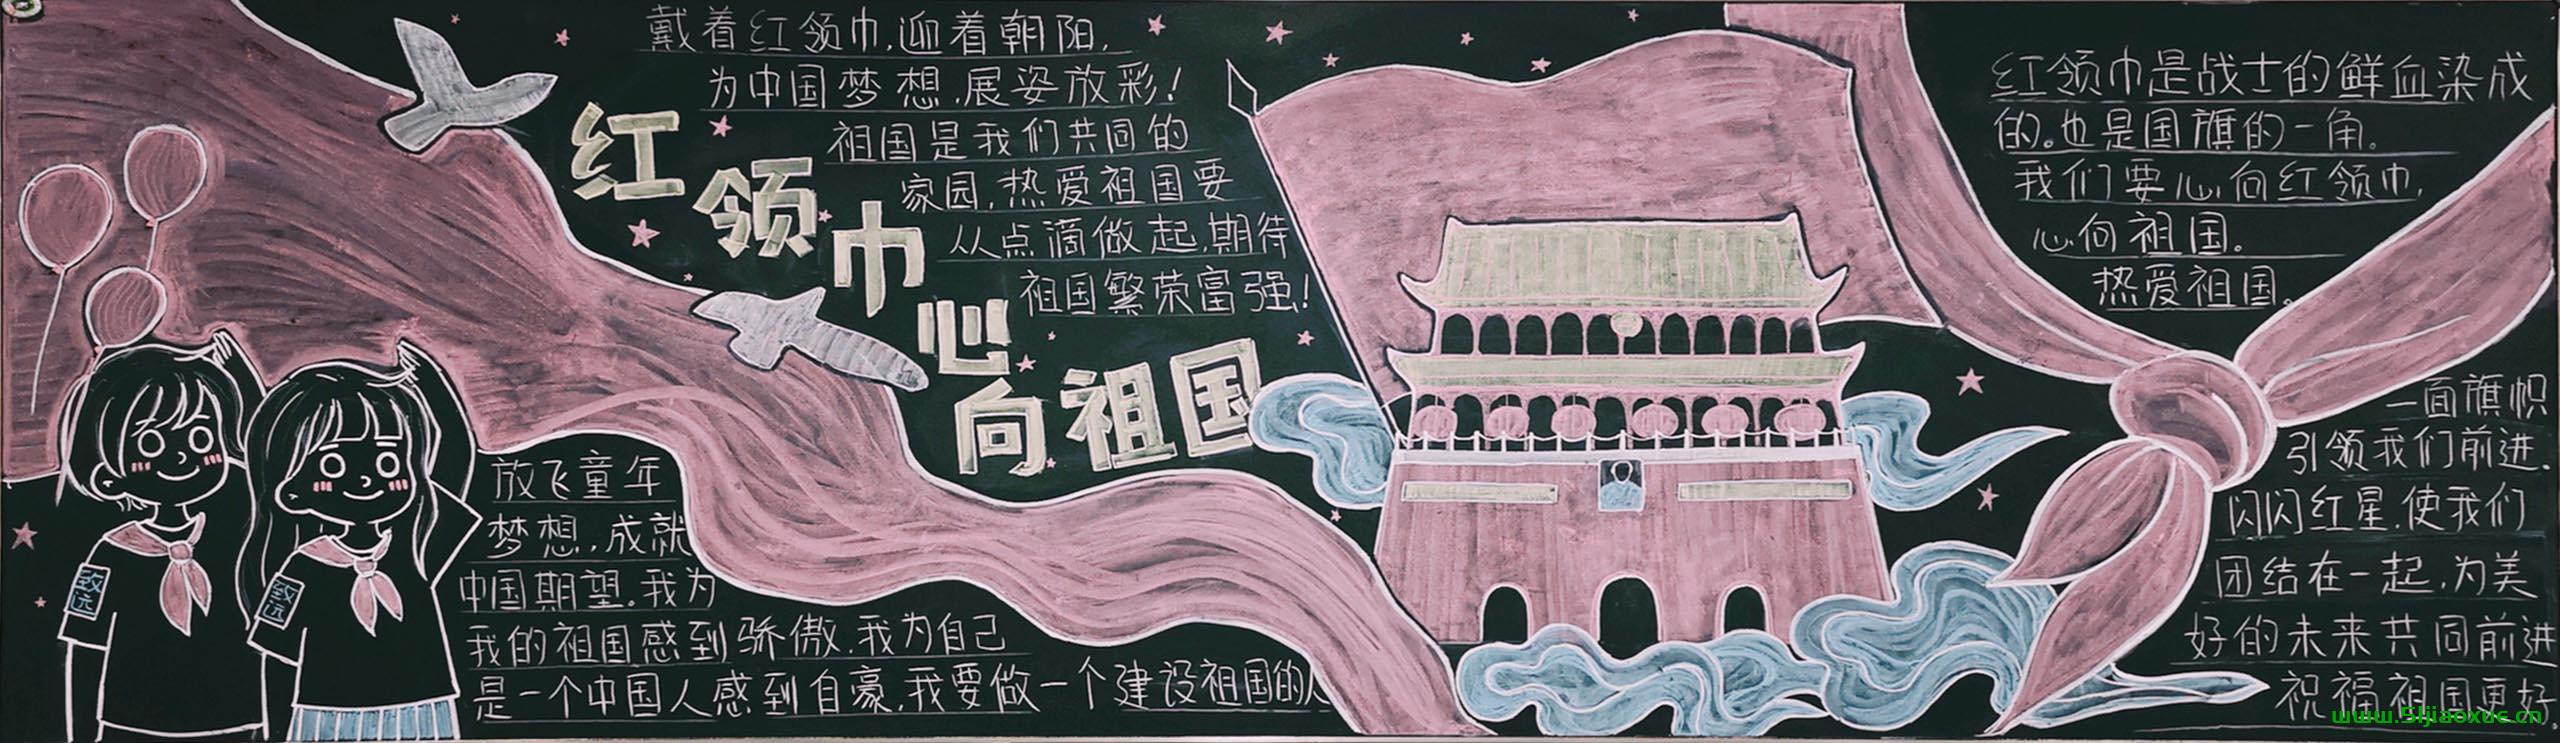 戴着红领巾,迎着朝阳,
为中国梦想,展姿放彩!
祖国是我们共同的
家园,热爱祖国要
从点滴做起,期待
祖国繁荣富强!
红领巾心向祖国
放飞童年
梦想,成就
中国期望。我为
我的祖国感到骄傲,我为自己
是一个中国人感到自豪,我要做一个建设祖国的人
致远
致远
红领巾是战士的鲜血染成
的。也是国旗的一角。
我们要心向红领巾,
心向祖国。
热爱祖国。
一面旗帜
引领我们前进.
闪闪红星,使我们
团结在一起,为美
好的未来共同前进
祝福祖国更好
www.51jiaoxue.cn